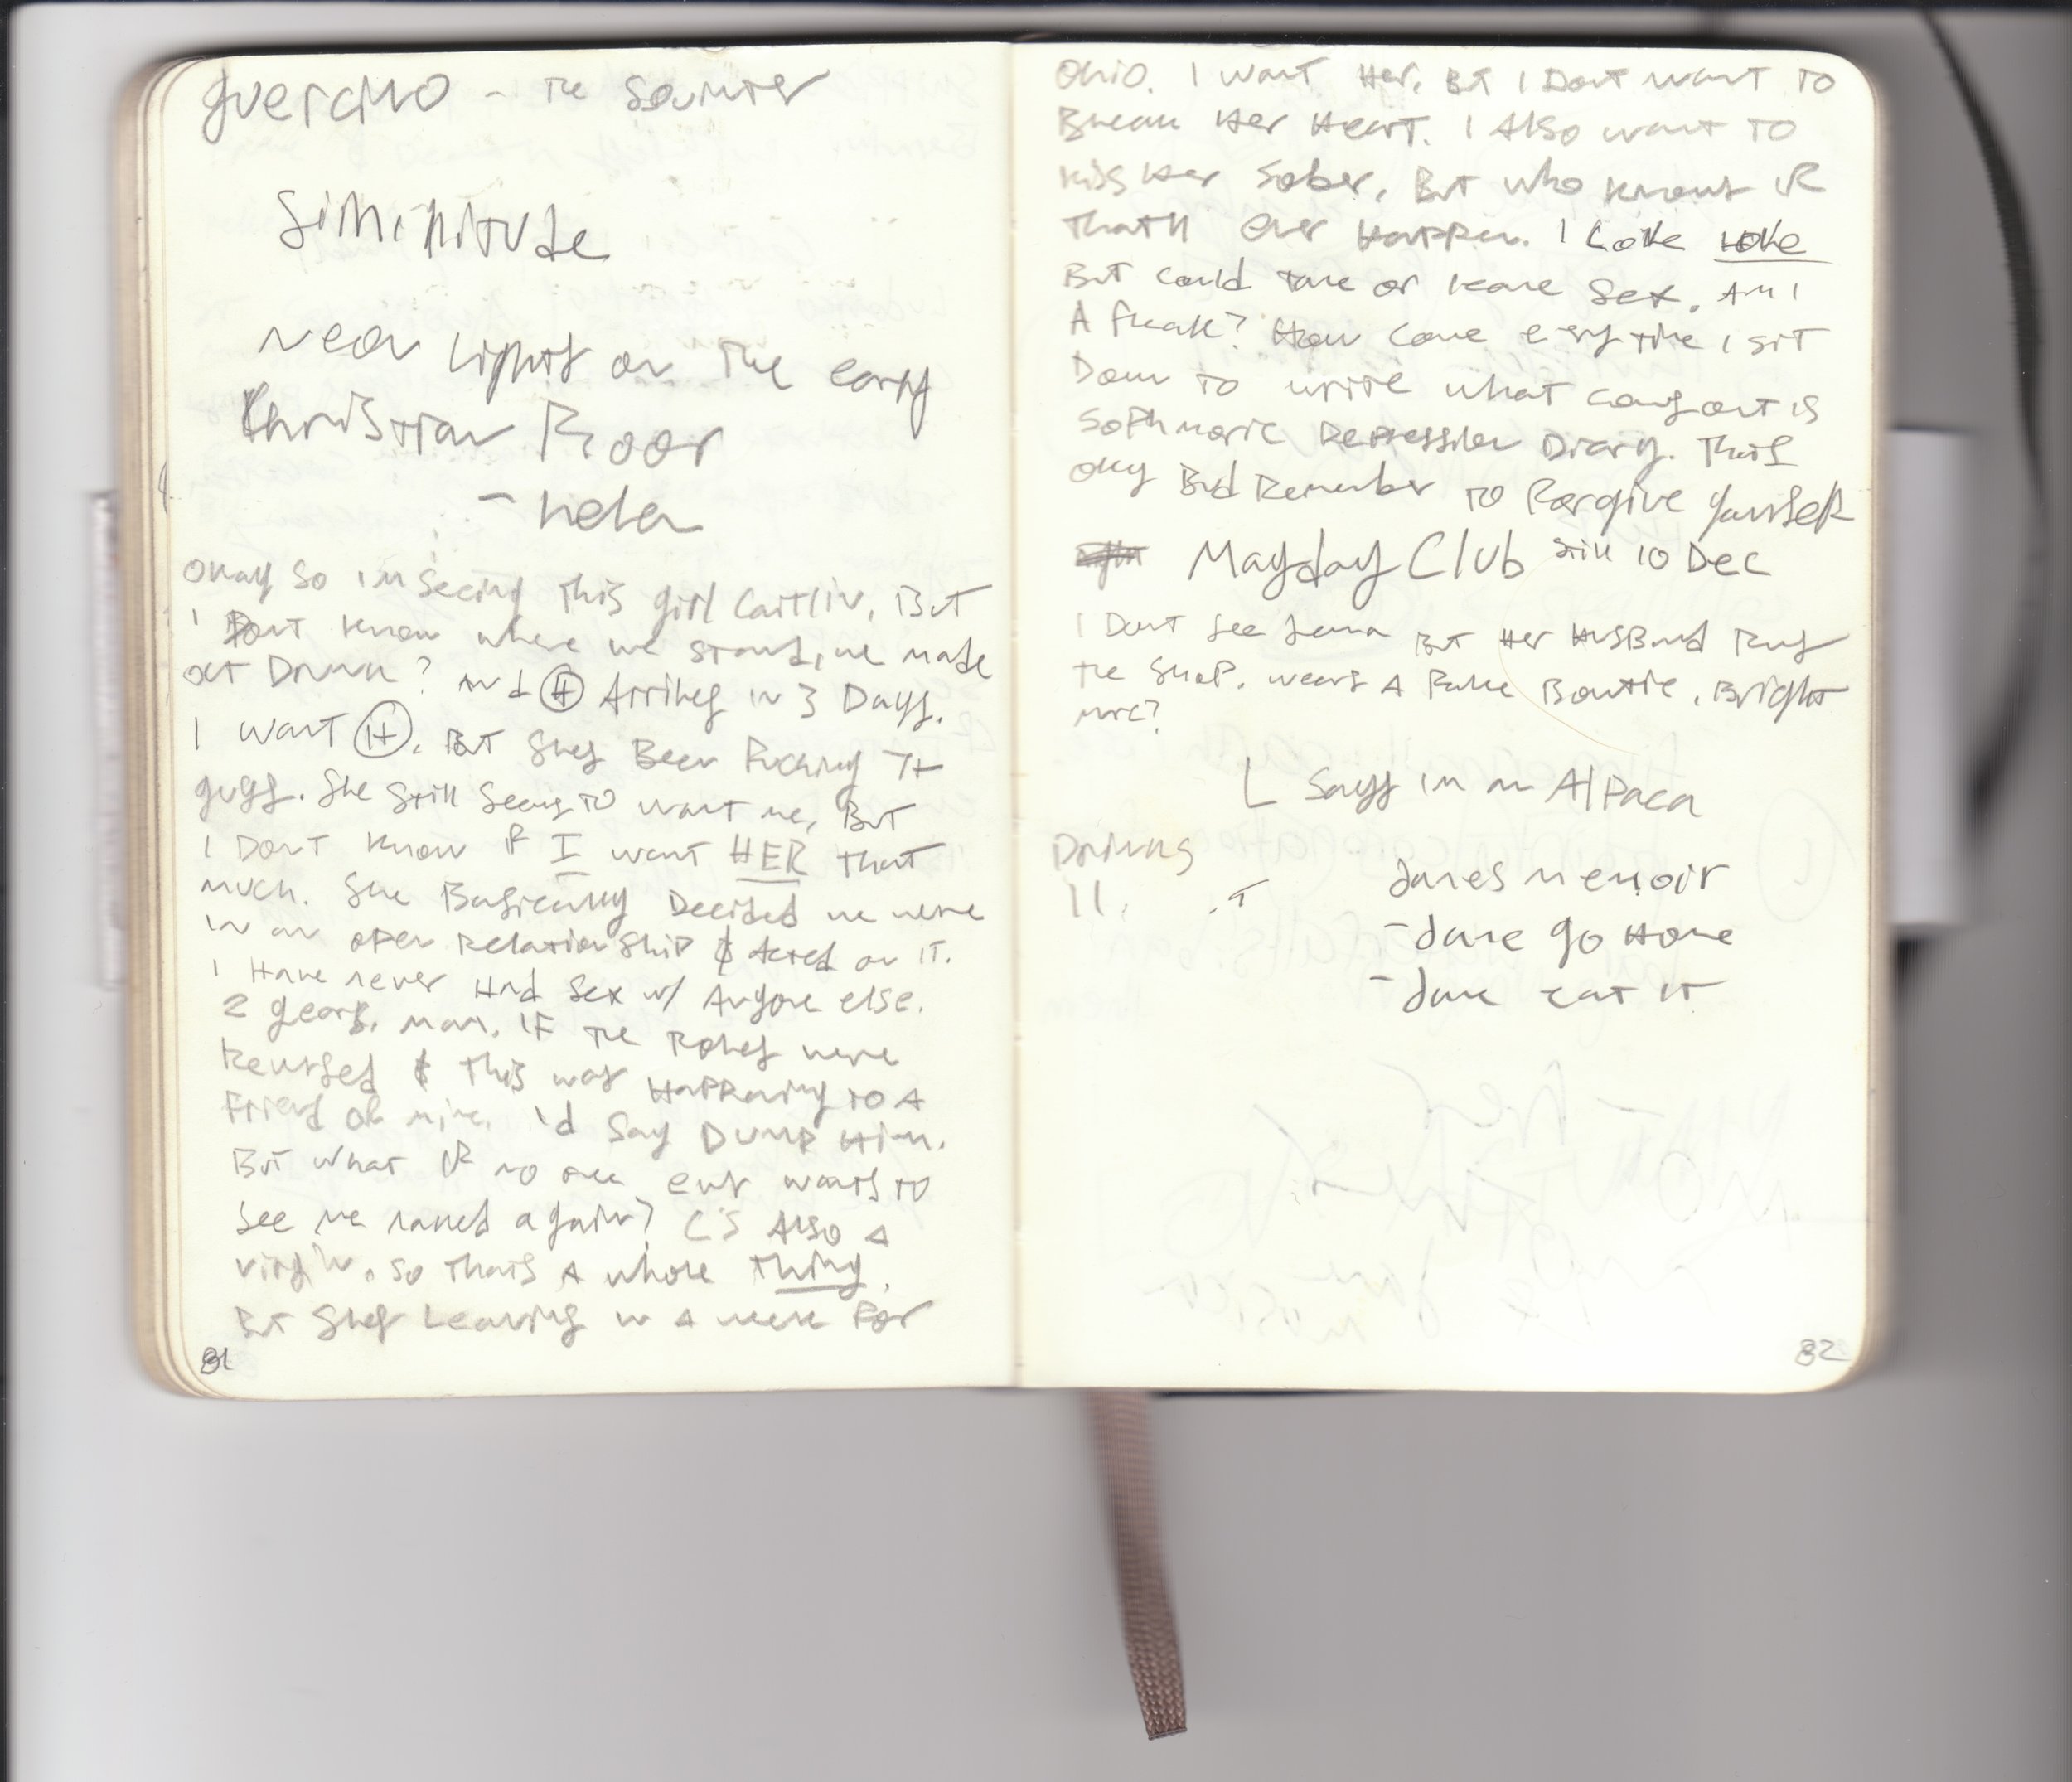 guercino - the squinter
Similitude
Neon lights on the early
Christian Floor
- Helen
Okay so im seeing this girl Caitlin, But
I Dont know where we stand, we made
out Drunk? And Ⓗ Arrives in 3 Days.
I want Ⓗ. But Shes Been Fucking 7+
guys. She still seems to want me, But
I Dont know if I want HER that
much. She Basically Decided we were
in an open Relationship & Acted on it.
I Have never Had Sex w/ Anyone else.
2 years, man. IF the Roles were
Reversed & this was Happening to A
Friend of mine, I'd Say Dump Him.
But what if no one ever wants to
See me naked again? C's Also a
virgin, so thats A whole thing.
But Shes Leaving in a week For
81
Ohio. I want Her, But I Dont want to
Break Her Heart. I Also want to
kiss Her Sober, But who knows if
thatll Ever Happen. I Love Love
But could take or leave Sex. Am I
A freak? How come every time I sit
Down to write what comes out is
Sophmoric Depression Diary. Thats
okay Bud Remember to Forgive Yourself
Mayday Club Still 10 Dec
I Dont See Jenna But Her HusBand Runs
the Shop. wears A Fake Bowtie. Bright
L Says im an Alpaca
Drinks
11
Janes Memoir
- Jane go Home
- Jane Eat it
82